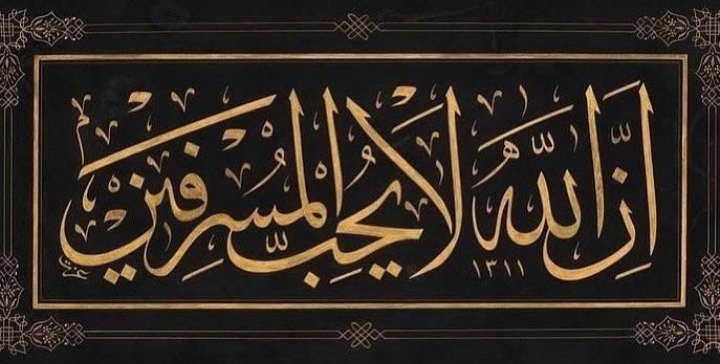 اِنَّ اللّٰهَ لَا يُحِبُّ الْمُسْرِفٖينَ
١٣١١